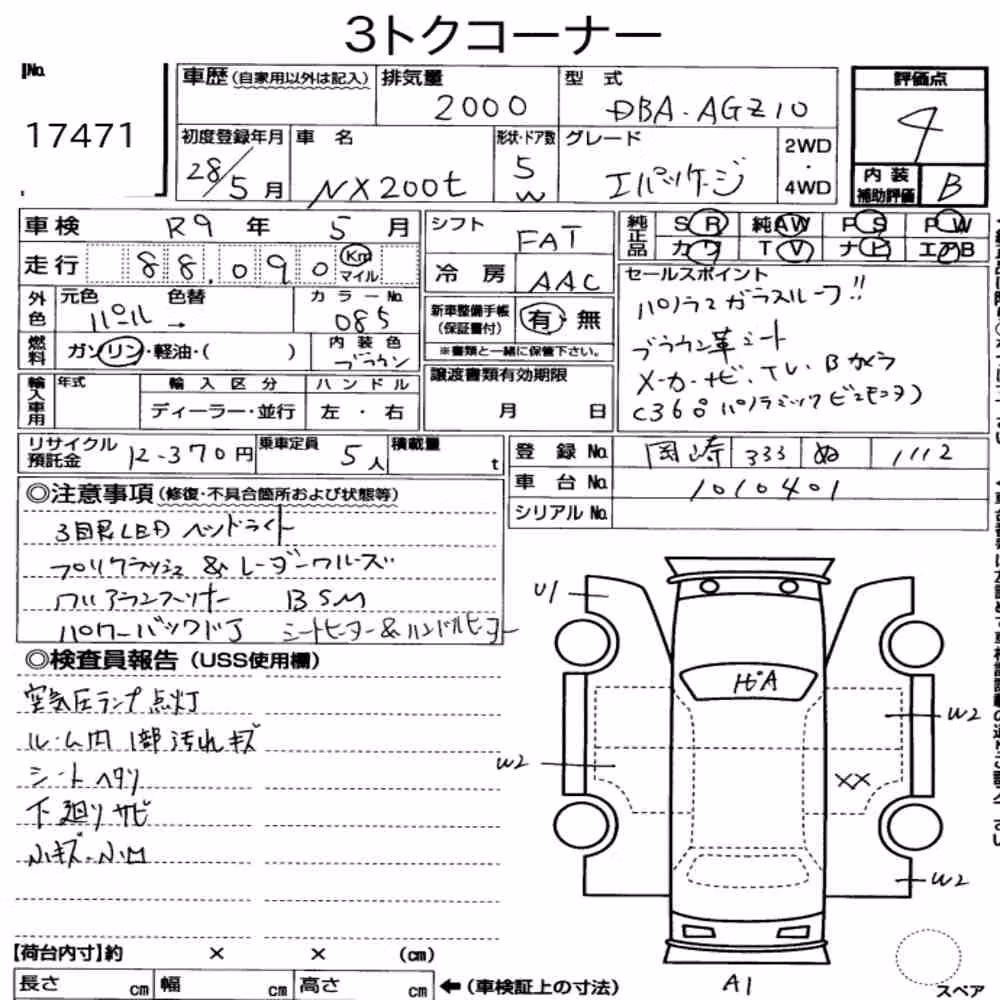 3トクコーナー
No.
17471
車歴(自家用以外は記入)
排気量
2000
型 式
DBA-AGZ10
評価点
4
初度登録年月
28/5月
車 名
NX200t
形状・ドア数
5
W
グレード
Iパッケージ
2WD
・
4WD
内 装
補助評価
B
車検 R9 年 5 月
シフト
FAT
純正品
SR 純AW PS PW
カワ TV ナビ エアB
走行 88,090 Km
マイル
冷 房 AAC
外色
元色 色替
パール →
カラーNo.
085
新車整備手帳
(保証書付)
有・無
※書類と一緒に保管下さい。
セールスポイント
パノラマガラスルーフ!!
ブラウン革シート
メーカーナビ.TV.Bカメラ
(360°パノラミックビューモニタ)
燃料
ガソリン・軽油・( )
内 装 色
ブラウン
輸入車用
年式
輸 入 区 分
ディーラー・並行
ハ ン ド ル
左 ・ 右
譲渡書類有効期限
月 日
リサイクル
預託金 12-370円
乗車定員
5人
積載量
t
登 録 No. 岡崎 333 ぬ 1112
車 台 No. 1010401
シリアル No.
◎注意事項(修復・不具合箇所および状態等)
3眼LEDヘッドライト
プリクラッシュ&レーダークルーズ
クリアランスソナー BSM
パワーバックドア シートヒーター&ハンドルヒーター
◎検査員報告(USS使用欄)
空気圧ランプ点灯
ルーム内1部汚れキズ
シートヘタリ
下廻りサビ
小キズ.小凹
U1
W2
W2
XX
W2
A1
スペア
【荷台内寸】約 × × (cm)
長さ cm 幅 cm 高さ cm ←(車検証上の寸法)